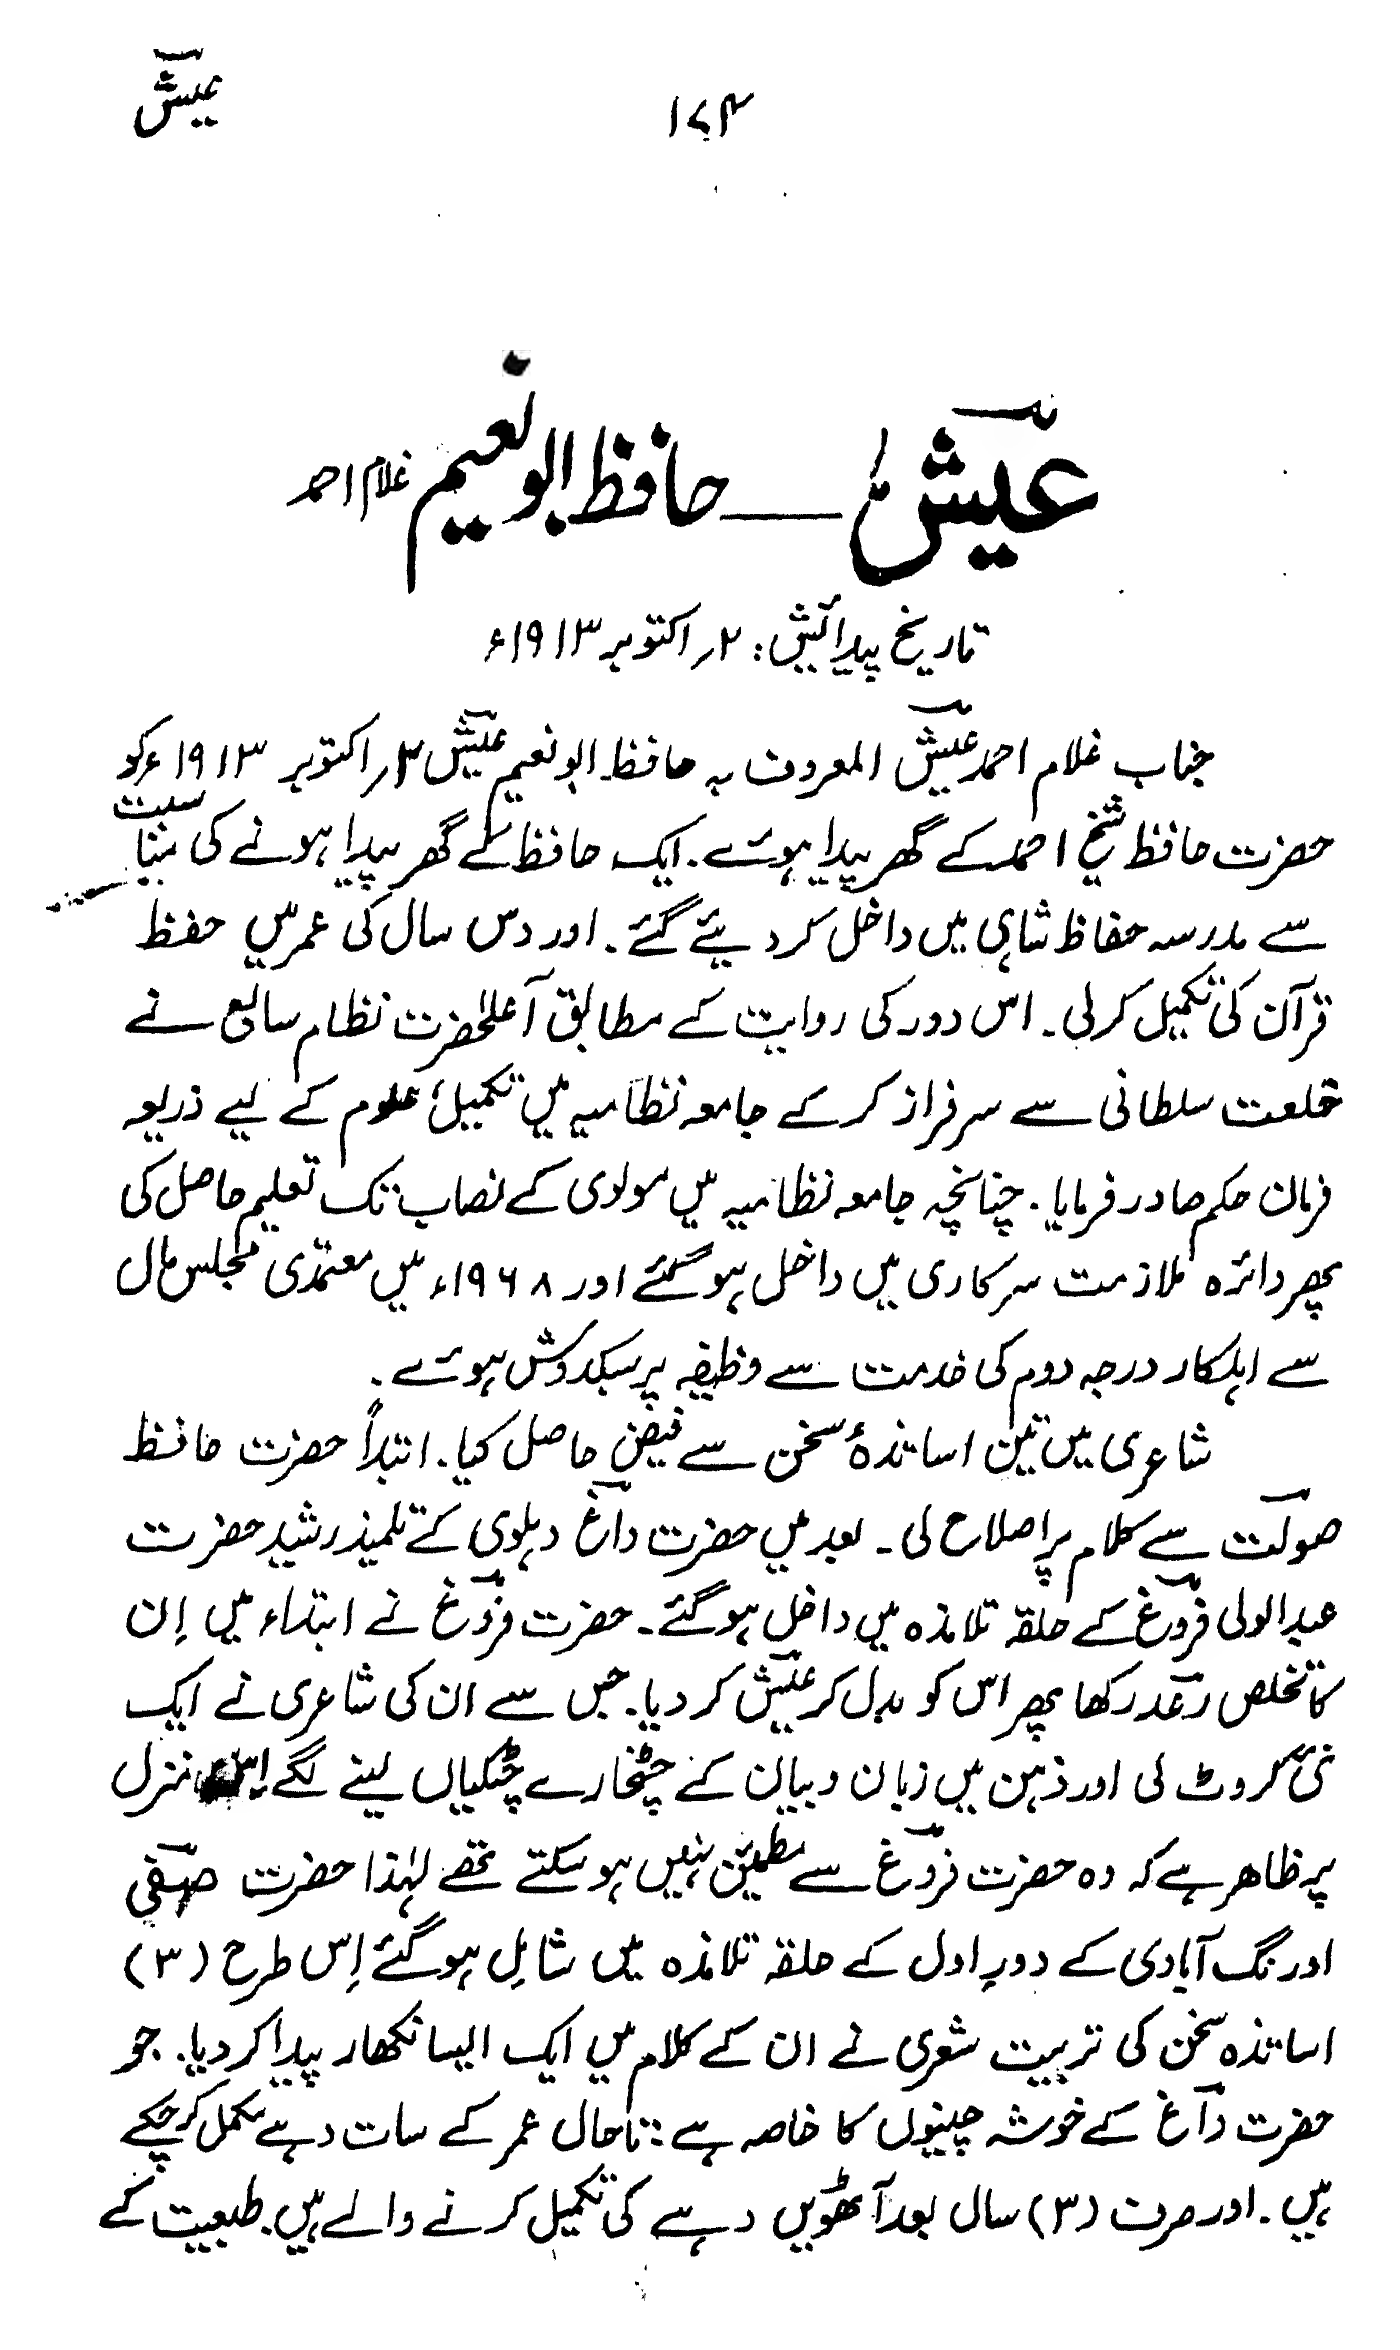 عیشؔ
۱۷۴
عیشؔ ــــ حافظ ابو نعیم غلام احمد
تاریخ پیدائش: ۲؍ اکتوبر ۱۹۱۳ء
جناب غلام احمد عیشؔ المعروف بہ حافظ ابو نعیم عیشؔ ۲؍ اکتوبر ۱۹۱۳ء کو
حضرت حافظ شیخ احمد کے گھر پیدا ہوئے۔ ایک حافظ کے گھر پیدا ہونے کی نسبت
سے مدرسہ حفاظ شاہی میں داخل کر دیئے گئے۔ اور دس سال کی عمر میں حفظ
قرآن کی تکمیل کر لی۔ اس دور کی روایت کے مطابق آعلٰحضرت نظام سابع نے
خلعت سلطانی سے سرفراز کر کے جامعہ نظامیہ میں تکمیل علوم کے لیے ذریعہ
فرمان حکم صادر فرمایا۔ چنانچہ جامعہ نظامیہ میں مولوی کے نصاب تک تعلیم حاصل کی
پھر دائرہ ملازمت سرکاری میں داخل ہو گئے اور ۱۹۶۸ء میں معتمدی مجلس مال
سے اہلکار درجہ دوم کی خدمت سے وظیفہ پر سبکدوش ہوئے۔
شاعری میں تین اساتذۂ سخن سے فیض حاصل کیا۔ ابتداً حضرت حافظ
صولتؔ سے کلام پر اصلاح لی۔ بعد میں حضرت داغؔ دہلوی کے تلمیذ رشید حضرت
عبدالولی فروغؔ کے حلقہ تلامذہ میں داخل ہو گئے۔ حضرت فروغؔ نے ابتداء میں اِن
کا تخلص رعدؔ رکھا پھر اس کو بدل کر عیشؔ کر دیا۔ جس سے ان کی شاعری نے ایک
نئی کروٹ لی اور ذہن میں زبان و بیان کے چٹخارے چٹکیاں لینے لگے اِس منزل
پر ظاہر ہے کہ وہ حضرت فروغؔ سے مطمئن نہیں ہو سکتے تھے لہٰذا حضرت صفیؔ
اورنگ آبادی کے دورِ اول کے حلقہ تلامذہ میں شامِل ہو گئے اِس طرح (۳)
اساتذہ سخن کی تربیت شعری نے ان کے کلام میں ایک ایسا نکھار پیدا کر دیا۔ جو
حضرت داغؔ کے خوشہ چینوں کا خاصہ ہے: تاحال عمر کے سات دہے مکمل کر چکے
ہیں۔ اور صرف (۳) سال بعد آٹھویں دہے کی تکمیل کرنے والے ہیں۔ طبعیت کے